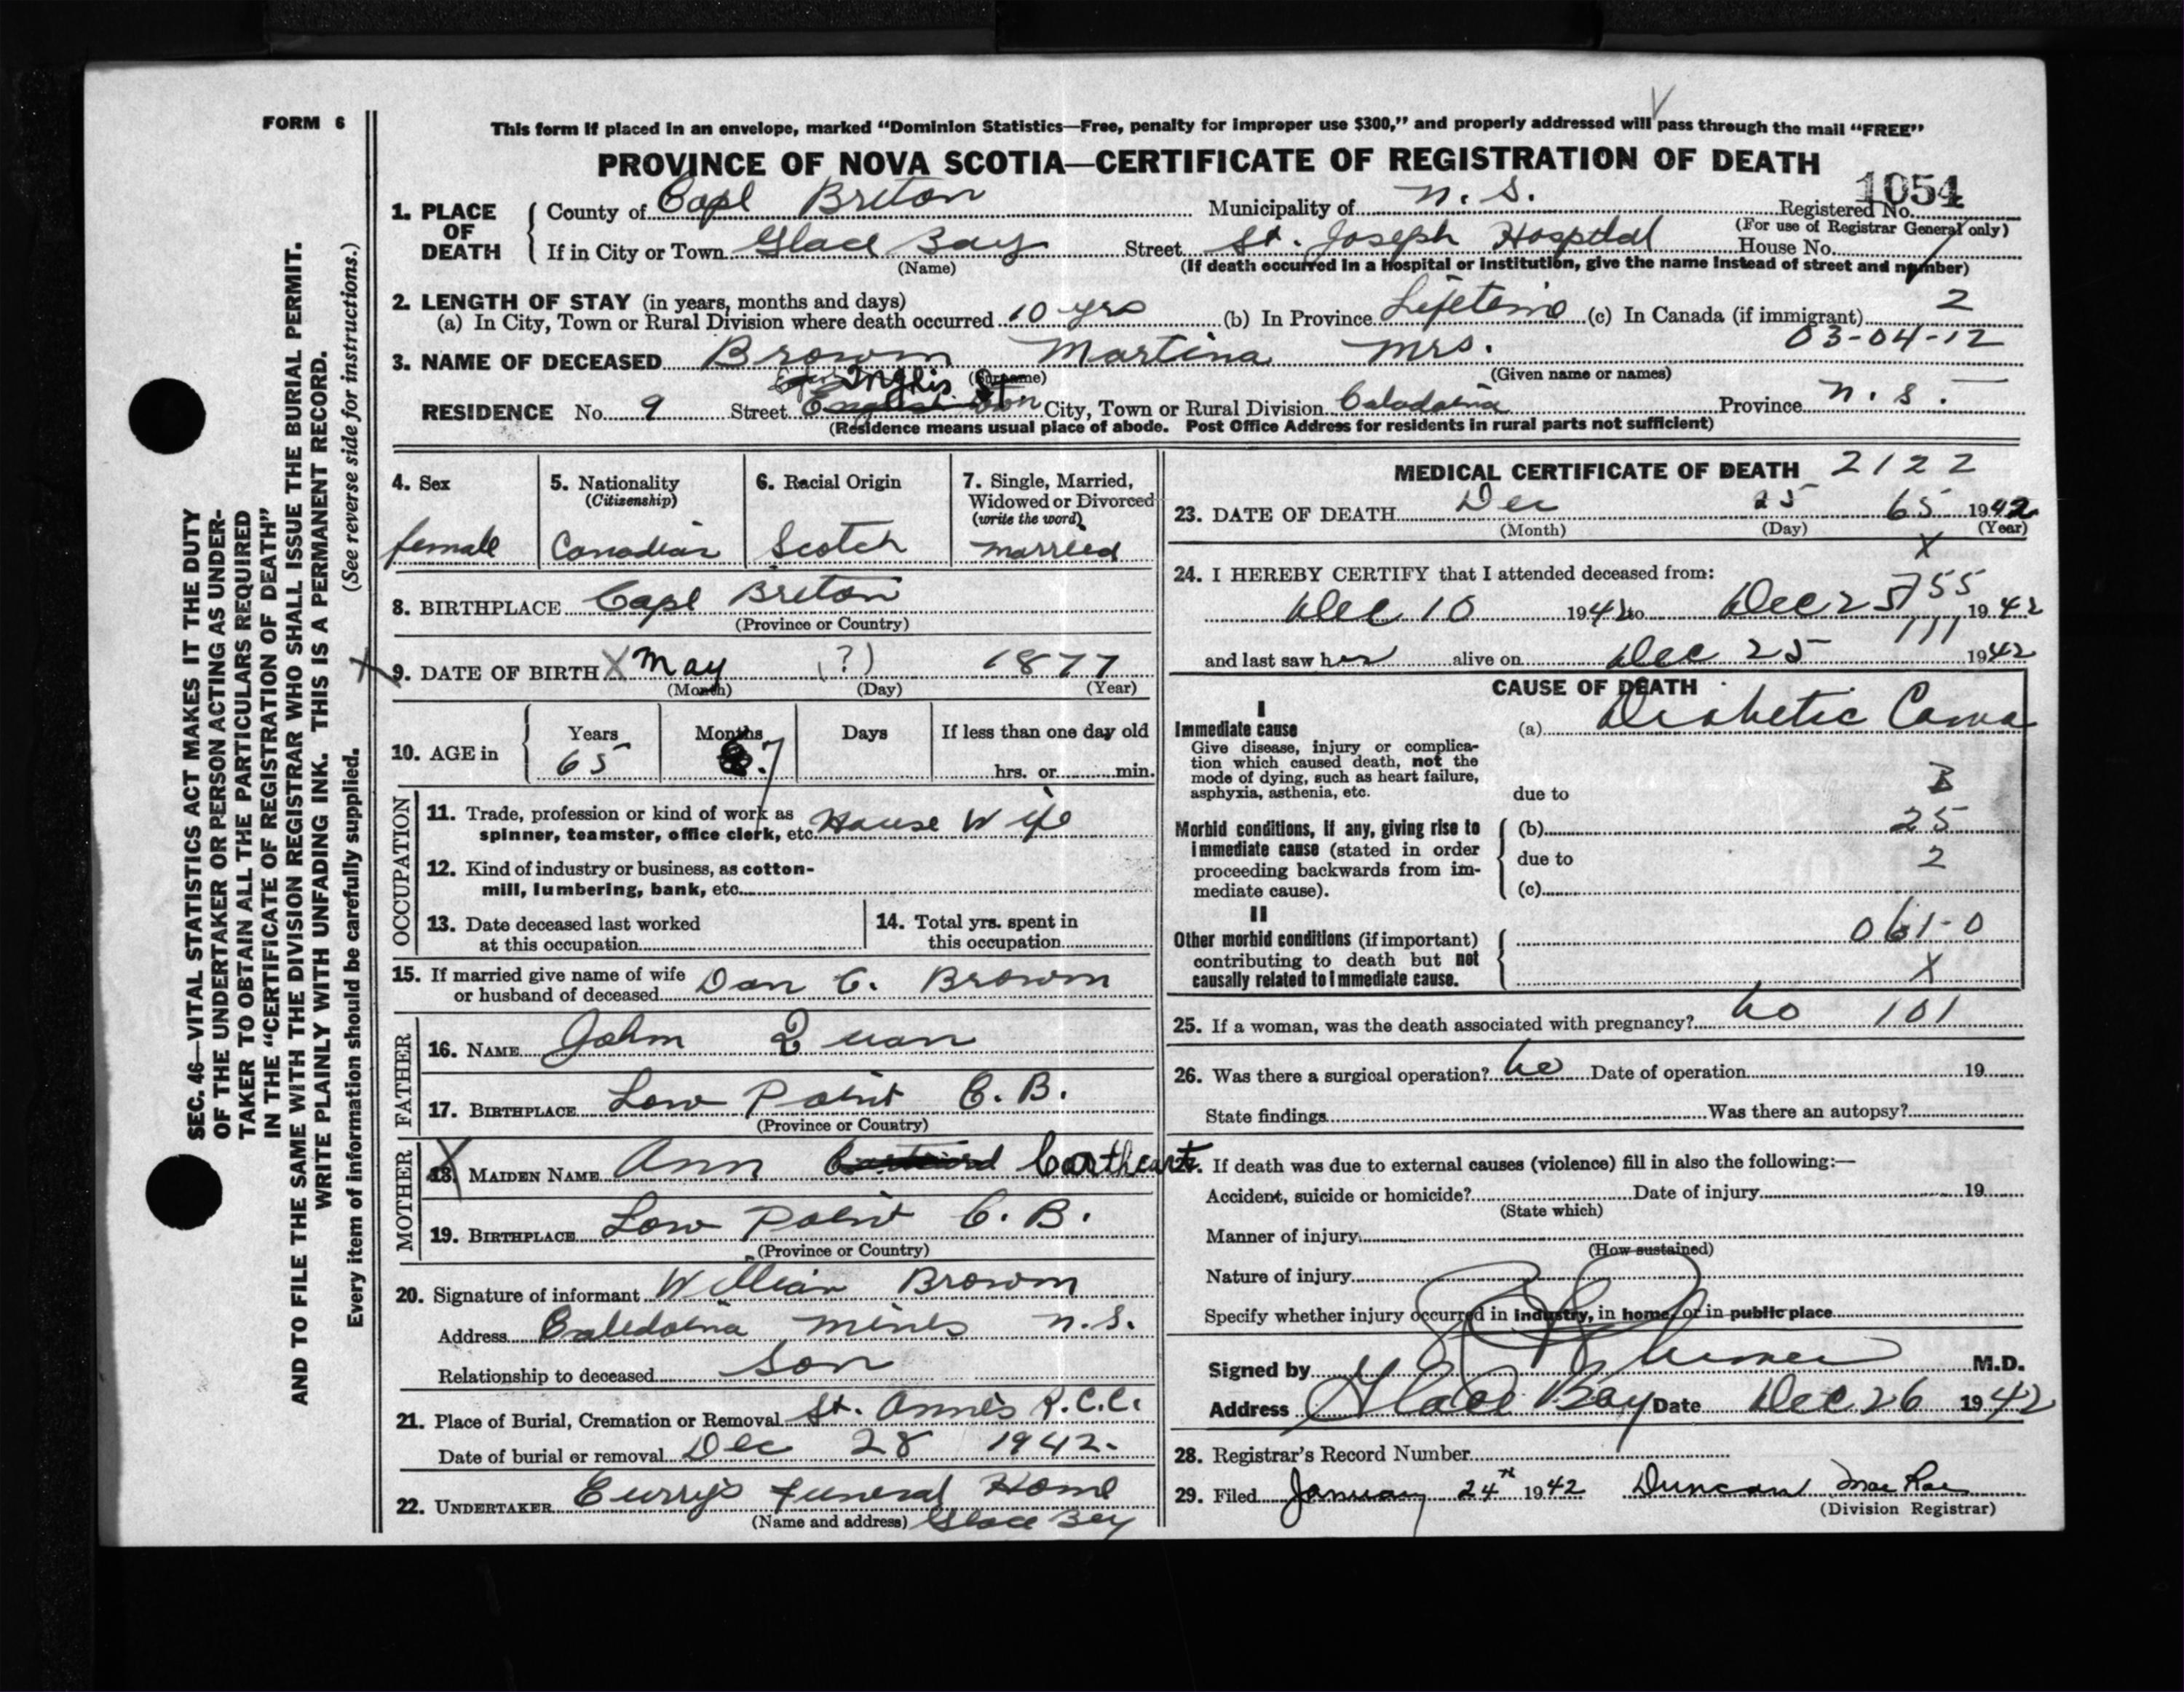 FORM 6
This form if placed in an envelope, marked “Dominion Statistics—Free, penalty for improper use $300,” and properly addressed will pass through the mail “FREE”
PROVINCE OF NOVA SCOTIA—CERTIFICATE OF REGISTRATION OF DEATH
1054
1. PLACE OF DEATH { County of Cape Breton Municipality of N. S. Registered No.
(For use of Registrar General only)
If in City or Town Glace Bay Street St. Joseph Hospital House No.
(Name) (If death occurred in a hospital or institution, give the name instead of street and number)
2. LENGTH OF STAY (in years, months and days)
(a) In City, Town or Rural Division where death occurred 10 yrs (b) In Province Lifetime (c) In Canada (if immigrant) 2
03-04-12
3. NAME OF DECEASED Brown Martina Mrs.
(Surname) (Given name or names)
Inglis St
RESIDENCE No. 9 Street City, Town or Rural Division Caledonia Province N. S.
(Residence means usual place of abode. Post Office Address for residents in rural parts not sufficient)
4. Sex female
5. Nationality (Citizenship) Canadian
6. Racial Origin Scotch
7. Single, Married, Widowed or Divorced (write the word) Married
8. BIRTHPLACE Cape Breton
(Province or Country)
9. DATE OF BIRTH X May (?) 1877
(Month) (Day) (Year)
10. AGE in { Years 65 Months 7 Days If less than one day old hrs. or min.
OCCUPATION
11. Trade, profession or kind of work as spinner, teamster, office clerk, etc. House Wife
12. Kind of industry or business, as cotton-mill, lumbering, bank, etc.
13. Date deceased last worked at this occupation
14. Total yrs. spent in this occupation
15. If married give name of wife or husband of deceased Dan C. Brown
FATHER
16. NAME John Quan
17. BIRTHPLACE Low Point C. B.
(Province or Country)
MOTHER
18. MAIDEN NAME Ann Cartheart
19. BIRTHPLACE Low Point C. B.
(Province or Country)
20. Signature of informant William Brown
Address Caledonia Mines N.S.
Relationship to deceased Son
21. Place of Burial, Cremation or Removal St. Anne's R.C.C.
Date of burial or removal Dec 28 1942.
22. UNDERTAKER Curry's Funeral Home
(Name and address) Glace Bay
MEDICAL CERTIFICATE OF DEATH 2122
23. DATE OF DEATH Dec 25 65 1942
(Month) (Day) (Year)
X
24. I HEREBY CERTIFY that I attended deceased from:
755
Dec 10 1942 to Dec 25 1942
111
and last saw her alive on Dec 25 1942
CAUSE OF DEATH
I
Immediate cause (a) Diabetic Coma
Give disease, injury or complication which caused death, not the mode of dying, such as heart failure, asphyxia, asthenia, etc.
due to
Morbid conditions, if any, giving rise to immediate cause (stated in order proceeding backwards from immediate cause).
(b) 25
due to 2
(c)
II
Other morbid conditions (if important) contributing to death but not causally related to immediate cause.
061-0
X
25. If a woman, was the death associated with pregnancy? no 101
26. Was there a surgical operation? no Date of operation 19
State findings Was there an autopsy?
27. If death was due to external causes (violence) fill in also the following:—
Accident, suicide or homicide? Date of injury 19
(State which)
Manner of injury
(How sustained)
Nature of injury
Specify whether injury occurred in industry, in home, or in public place
Signed by M.D.
Address Glace Bay Date Dec 26 1942
28. Registrar's Record Number
29. Filed January 24th 1942 Duncan MacRae
(Division Registrar)
SEC. 46—VITAL STATISTICS ACT MAKES IT THE DUTY
OF THE UNDERTAKER OR PERSON ACTING AS UNDER-
TAKER TO OBTAIN ALL THE PARTICULARS REQUIRED
IN THE “CERTIFICATE OF REGISTRATION OF DEATH”
AND TO FILE THE SAME WITH THE DIVISION REGISTRAR WHO SHALL ISSUE THE BURIAL PERMIT.
WRITE PLAINLY WITH UNFADING INK. THIS IS A PERMANENT RECORD.
Every item of information should be carefully supplied. (See reverse side for instructions.)